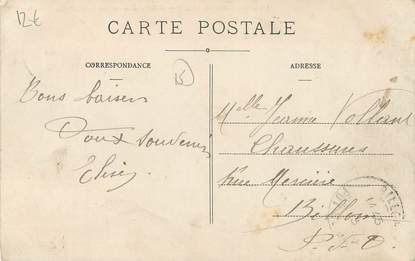 12€
CARTE POSTALE
CORRESPONDANCE
ADRESSE
15
Bons baisers
Doux souvenirs
Elise
Melle Jeanne Vollant
Chaussures
Rue Mercière
Billom
P. de D.
BILLOM